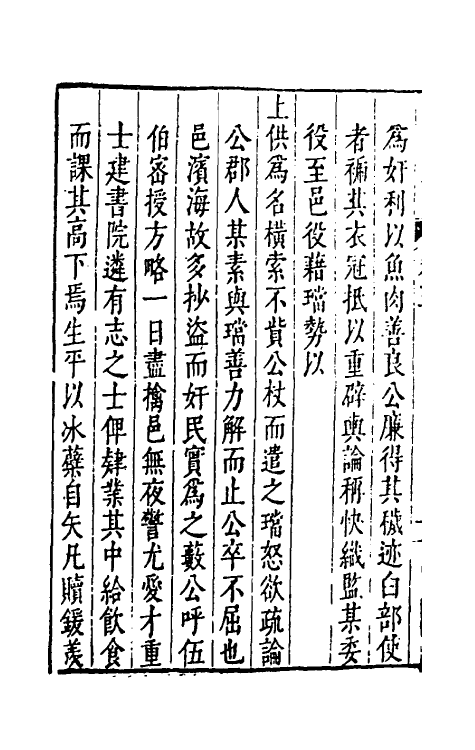 爲奸利以魚肉善良公廉得其穢迹白部使
者褫其衣冠抵以重辟輿論稱快織監某委
役至邑役藉璫勢以
上供爲名橫索不貲公杖而遣之璫怒欲疏論
公郡人某素與璫善力解而止公卒不屈也
邑濱海故多抄盜而奸民實爲之藪公呼伍
伯密授方略一日盡擒邑無夜警尤愛才重
士建書院遴有志之士俾肄業其中給飲食
而課其高下焉生平以冰蘗自矢凡贖鍰羨